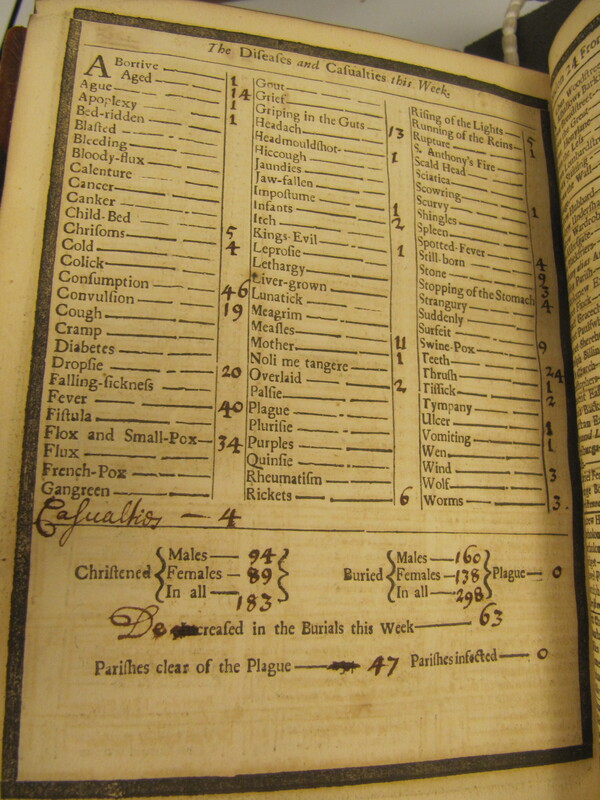 The Diseases and Casualties this Week.
ABortive 1
Aged 14
Ague 1
Apoplexy 1
Bed-ridden
Blasted
Bleeding
Bloody-flux
Calenture
Cancer
Canker
Child-Bed 5
Chrisoms 4
Cold
Colick
Consumption 46
Convulsion 19
Cough
Cramp
Diabetes
Dropsie 20
Falling-sickness
Fever 40
Fistula
Flox and Small-Pox 34
Flux
French-Pox
Gangreen
Casualties — 4
Gout
Grief
Griping in the Guts 13
Headach
Headmouldshot 1
Hiccough
Jaundies
Jaw-fallen
Impostume 1
Infants 2
Itch
Kings-Evil 1
Leprosie
Lethargy
Liver-grown
Lunatick
Meagrim
Measles 11
Mother 1
Noli me tangere
Overlaid 2
Palsie
Plague
Plurisie
Purples
Quinsie
Rheumatism
Rickets 6
Rising of the Lights 5
Running of the Reins 1
Rupture
S. Anthony's Fire
Scald Head
Sciatica
Scowring
Scurvy 1
Shingles
Spleen
Spotted-Fever 4
Still-born 9
Stone 3
Stopping of the Stomach 4
Strangury
Suddenly
Surfeit 9
Swine-Pox
Teeth 24
Thrush 1
Tissick 2
Tympany
Ulcer 1
Vomiting 1
Wen
Wind 3
Wolf
Worms 3
Christened { Males — 94 Females — 89 In all — 183 }
Buried { Males — 160 Females — 138 In all — 298 } Plague — 0
Decreased in the Burials this Week — 63
Parishes clear of the Plague — 47 Parishes infected — 0